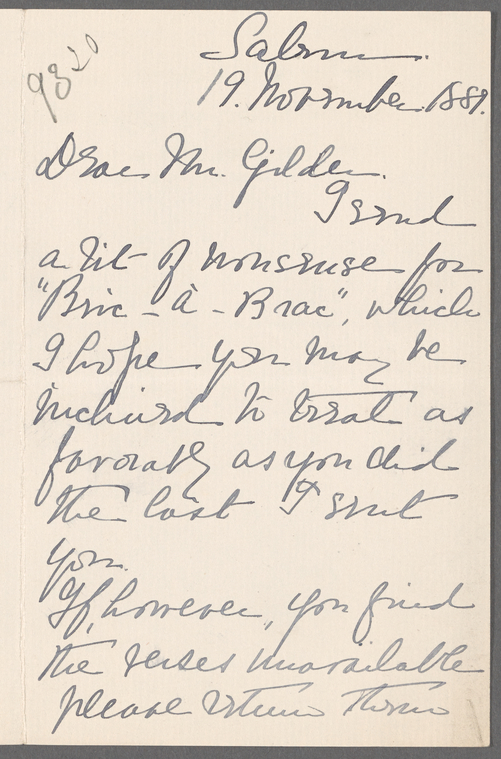 9820
Salem.
19. November. 1889.
Dear Mr. Gilder.
I send
a bit of nonsense for
"Bric-à-Brac", which
I hope you may be
inclined to treat as
favorably as you did
the last I sent
you.
If, however, you find
the verses unavailable
please return them